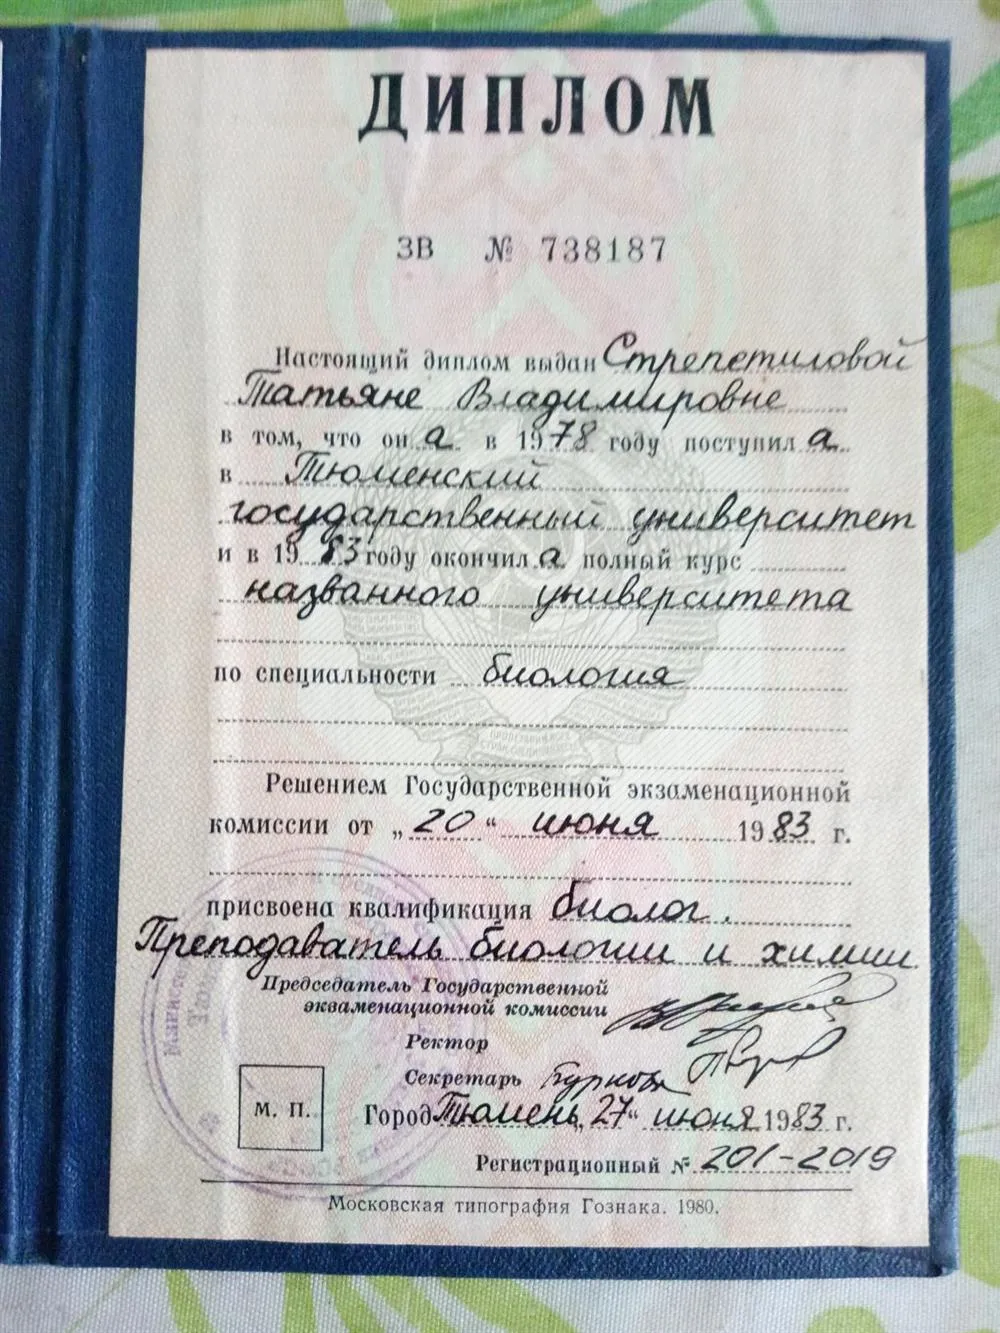 ДИПЛОМ
ЗВ № 738187
Настоящий диплом выдан Стрепетиловой
Татьяне Владимировне
в том, что он а в 1978 году поступил а
в Тюменский
государственный университет
и в 1983 году окончил а полный курс
названного университета
по специальности биология
Решением Государственной экзаменационной
комиссии от „20“ июня 1983 г.
присвоена квалификация биолог.
Преподаватель биологии и химии
Председатель Государственной
экзаменационной комиссии
Ректор
Секретарь
М. П.
Город Тюмень, 27“ июня 1983 г.
Регистрационный № 201-2019
Московская типография Гознака. 1980.